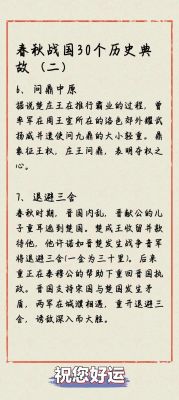 春秋战国30个历史典
故（二）
6、问鼎中原
据说楚庄王在推行霸业的过程，曾
率军在周王室所在的洛邑郊外耀武
扬威并遣使问九鼎的大小轻重。鼎
象征王权，庄王问鼎，表明夺权之
心。
7、退避三舍
春秋时期，晋国内乱，晋献公的儿
子重耳逃到楚国。楚成王收留并款
待他，他许诺如晋楚发生战争晋军
将退避三舍(一舍为三十里)。后来
重正在秦穆公的帮助下重回晋国执
政。晋国支持宋国与楚国发生矛
盾，两军在城濮相遇，重开退避三
舍，诱敌深入而大胜。
祝您好运